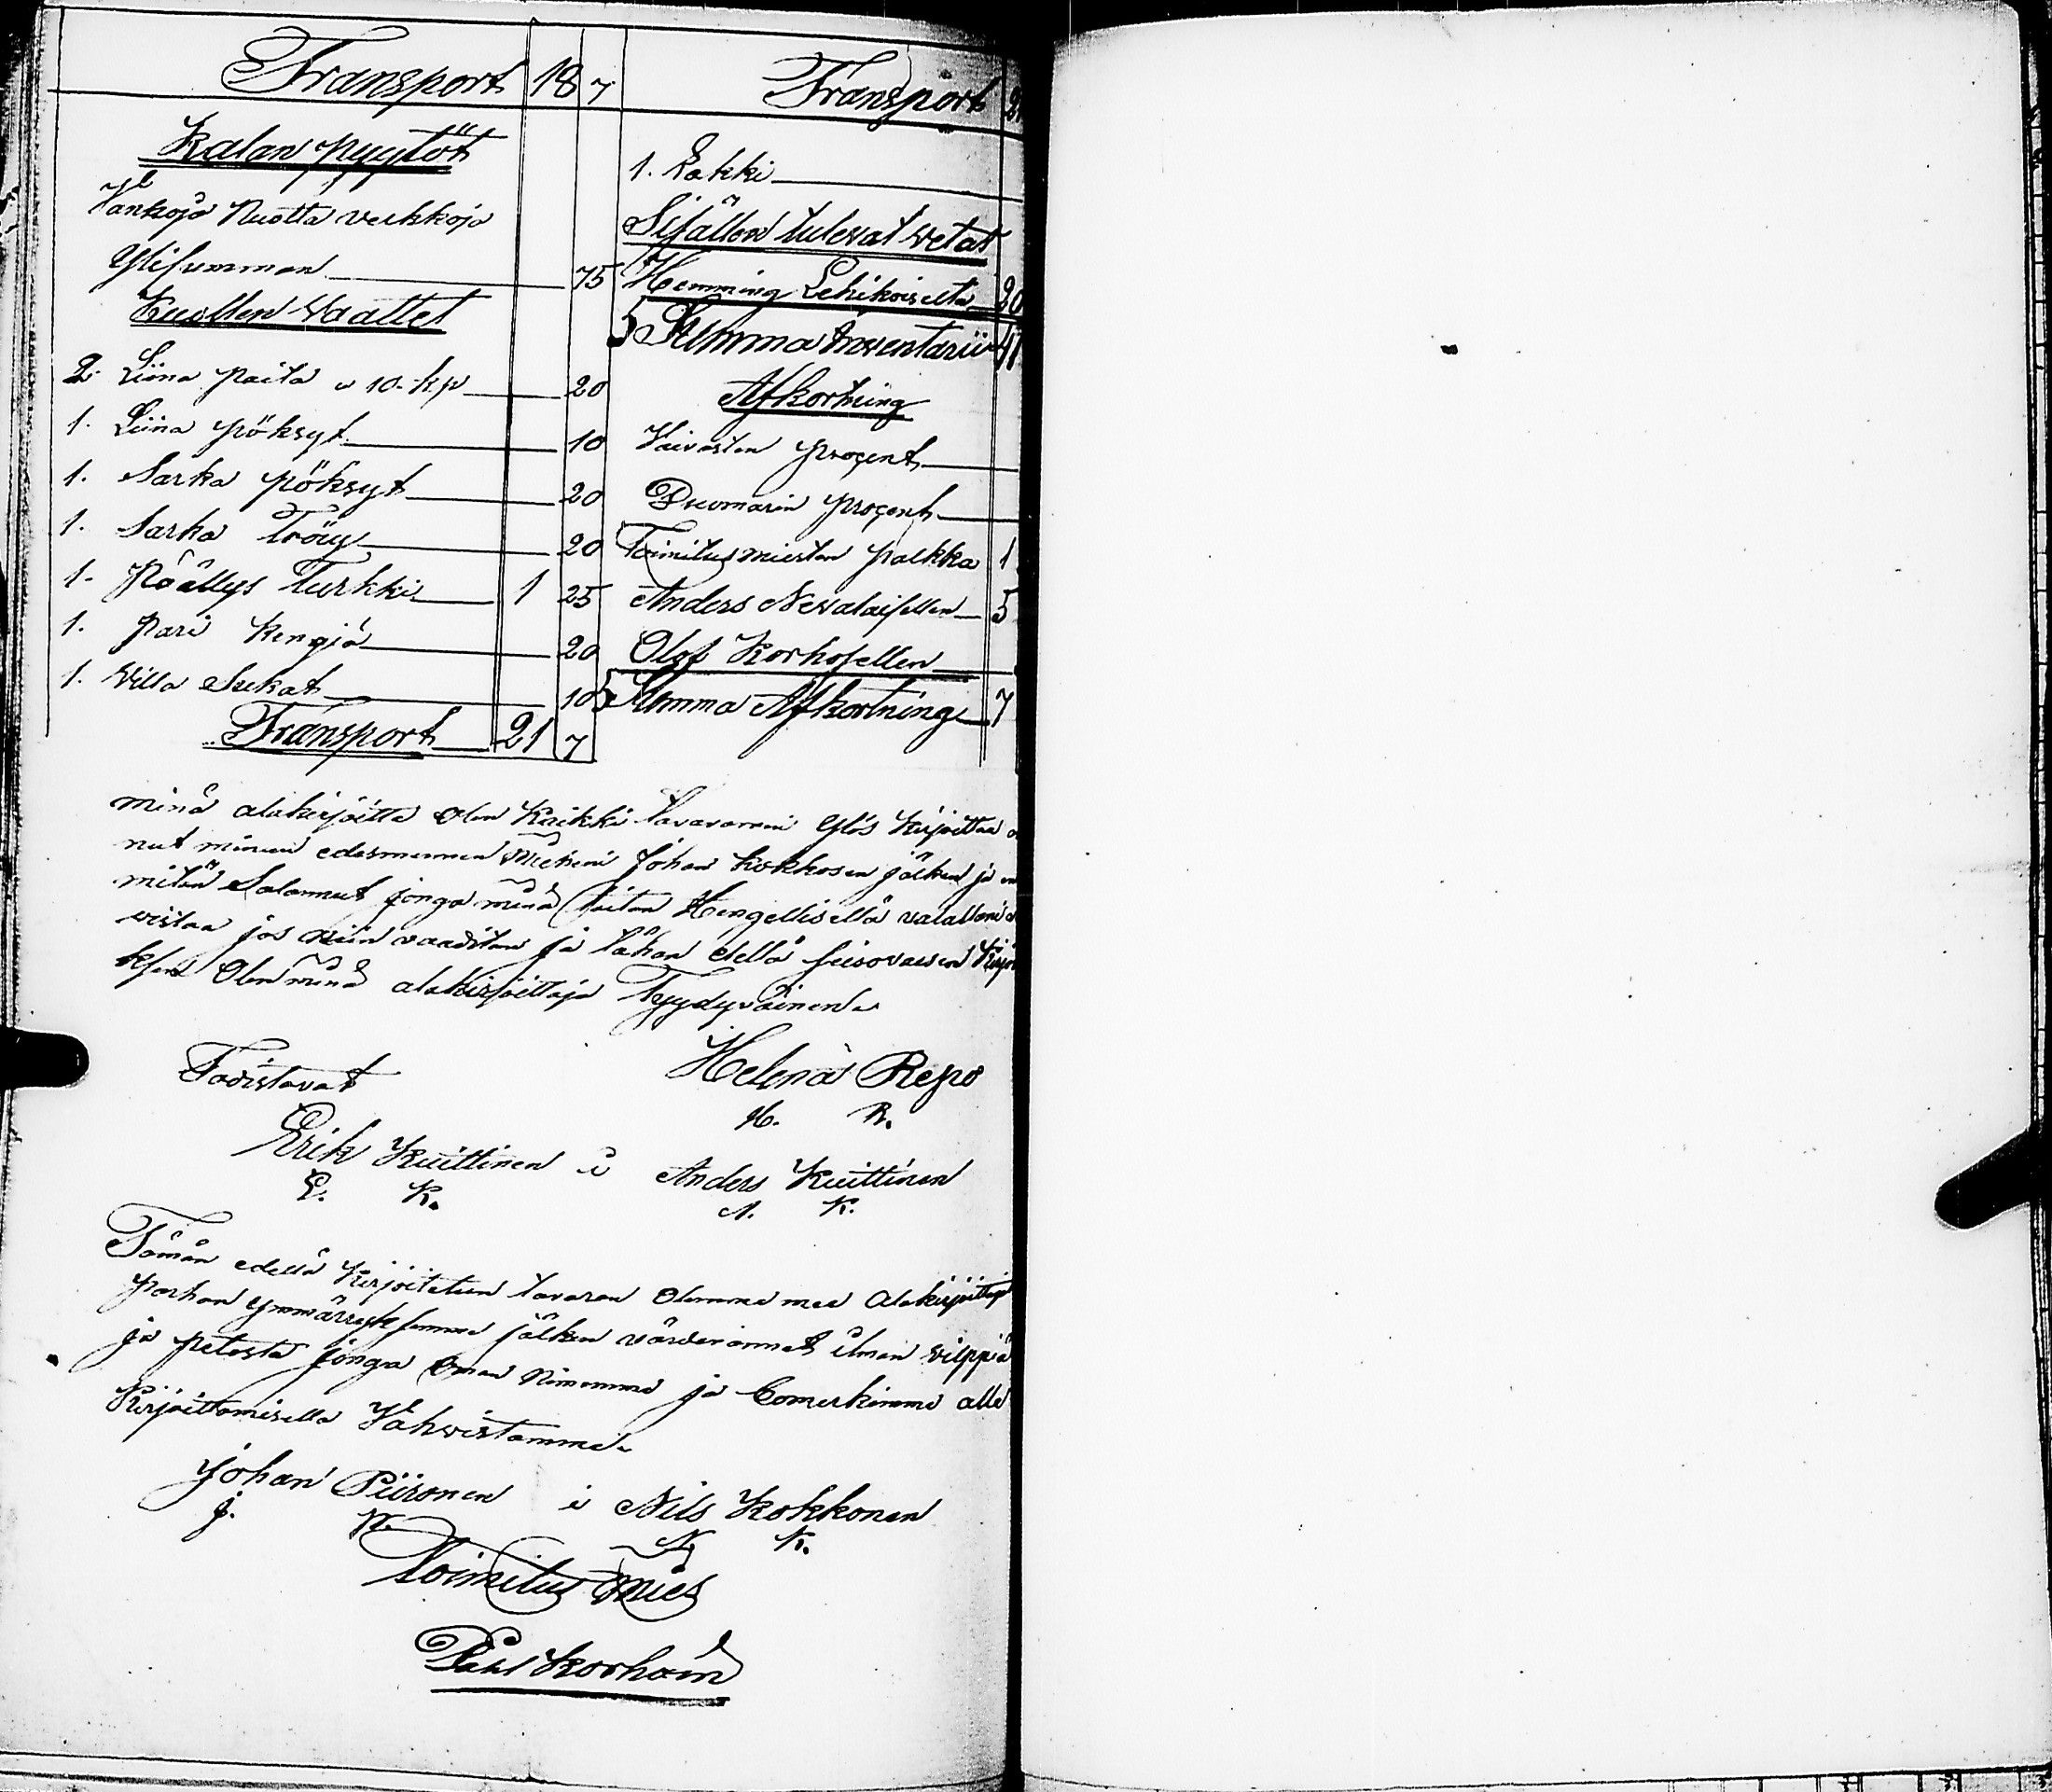 Transport 18 7
Kalan pyytöt
Vankoja Nuotta verkkoja
Ylisumman 75
Kuollen Waattet
2. Liina paita a 10. kp 20
1. Liina pöksyt 10
1. Sarka pöksyt 20
1. Sarka Tröiy 20
1. Päällys Turkki 1 25
1. Pari Kengiä 20
1. Villa Sukat 10
Transport 21 7
Transport 21
1. Lakki
Sisällen tulevat Velat
Hemming Lehikoiselta 20
Summa Inventarii 41
Afkortning
Vaivasten Proçent
Puumarin proçent
Toimitusmiesten palkka 1
Anders Nevalaisellen 5
Olof Korhosellen
Summa Afkortning 7
minä alakirjoitta Olen Kaikki tavarami Ylös kirjoittaa
nut minun edesmennen Mieheni Johan Kokkosen jälken ja en
mitän Salannut jonga minä taitan Hengellisellä valallani
vistaa jos niin vaaditan ja tähän edellä seisovaisen Kirjoi
ksen Olen minä alakirjoittaja Tyydyväinen
Todistavat Helena Repo
H. R.
Erik Kuittinen i Anders Kuittinen
E. K. A. K.
Tämän edellä Kirjoitetun tavaran Olemma me Alakirjoittaja
parhan Ymmärryksemme jälken värderannet ilman vilppiä
ja petosta jonga Oman Nimemme ja bomerkimme alle
Kirjoittamisella Vahvistamme
Johan Piironen i Nils Kokkonen
J. P. N. K.
Toimitus Mies
Påhl Korhoin